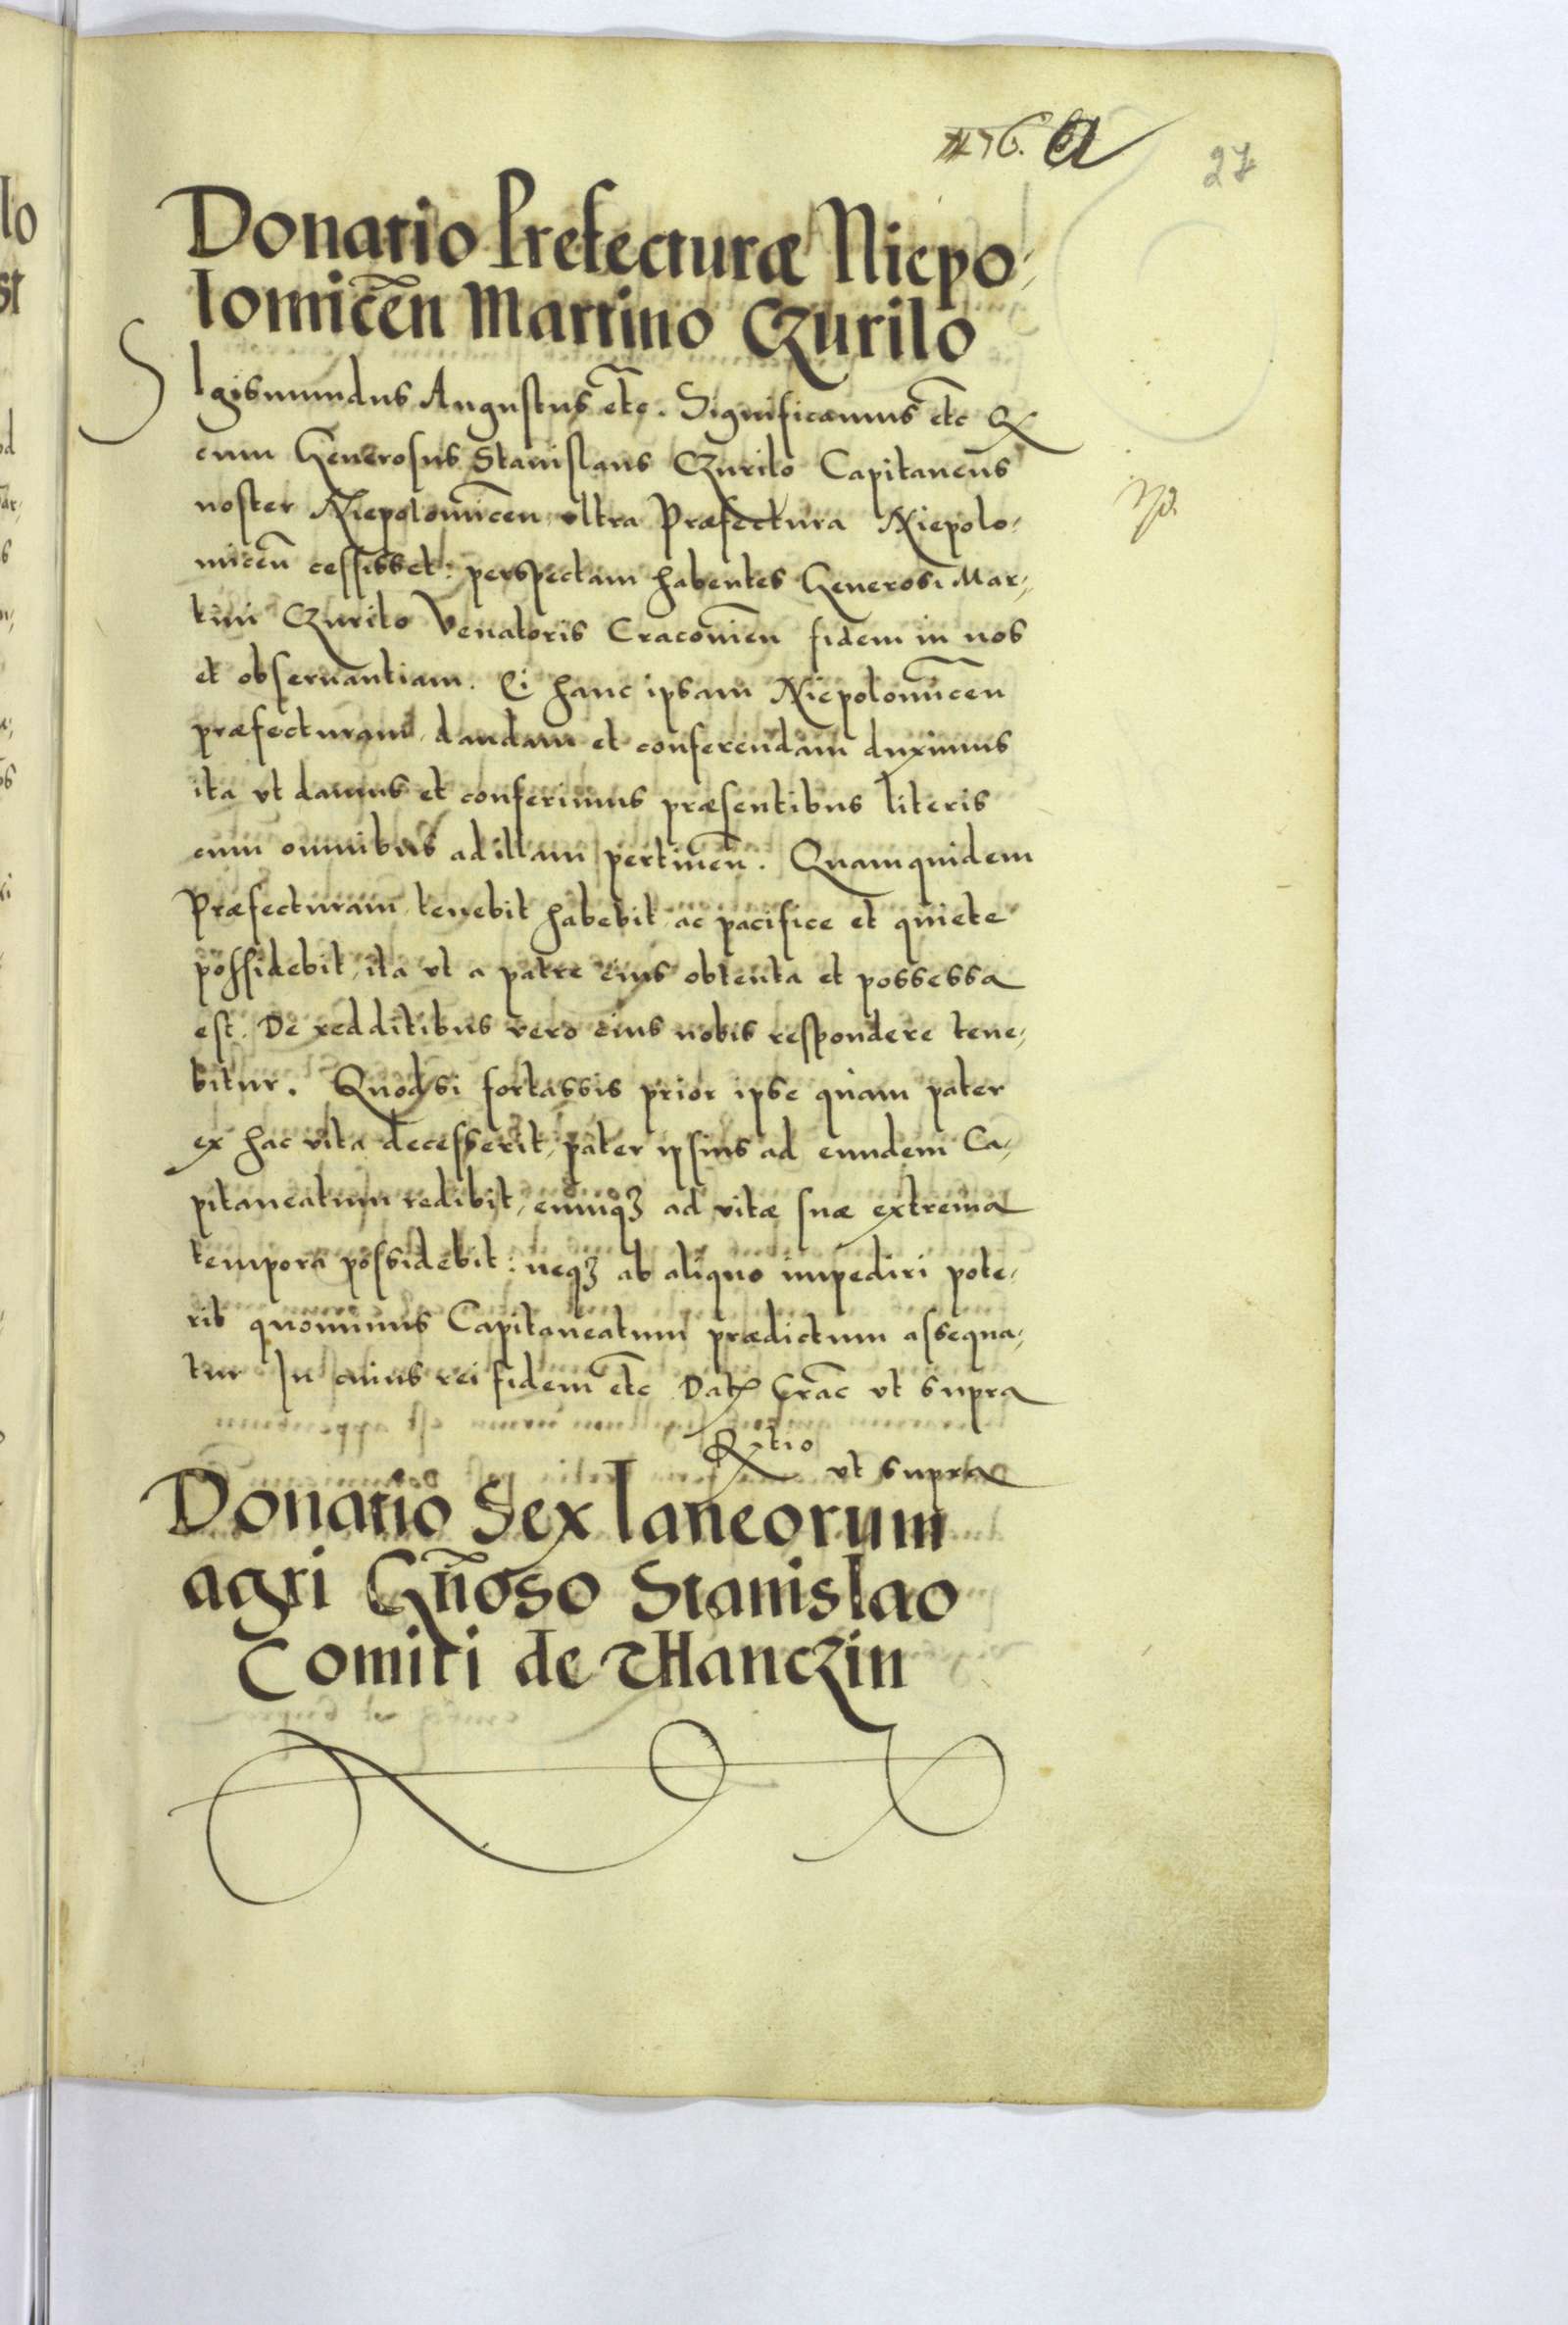 27
Donatio Prefecturæ Niepo-
lomiceñ Martino Czurilo
SIgismundus Augustus etc. Significamus etc Q
cum Generosus Stanislaus Czurilo Capitaneus
noster Niepolomiceñ vltra Præfectura Niepolo-
miceñ cessisset: perspectam habentes Generosi Mar-
tini Czurilo Venatoris Cracovieñ fidem in nos
et obseruantiam. Ei hanc ipsam Niepolomiceñ
præfecturam dandam et conferendam duximus
ita vt damus et conferimus præsentibus literis
cum omnibus ad illam pertineñ. Quamquidem
Præfecturam tenebit habebit ac pacifice et quiete
possidebit, ita vt a patre eius obtenta et possessa
est. De redditibus vero eius nobis respondere tene-
bitur. Quodsi fortassis prior ipse quam pater
ex hac vita decesserit, pater ipsius ad eundem Ca-
pitaneatum redibit, eumqꝫ ad vitæ suæ extrema
tempora possidebit: neqꝫ ab aliquo impediri pote-
rit quominus Capitaneatum prædictum assequa-
tur In cuius rei fidem etc Datꝭ Crac̃ vt supra
Rtio vt supra
Donatio Sex laneorum
agri Gñoso Stanislao
Comiti de Thanczin